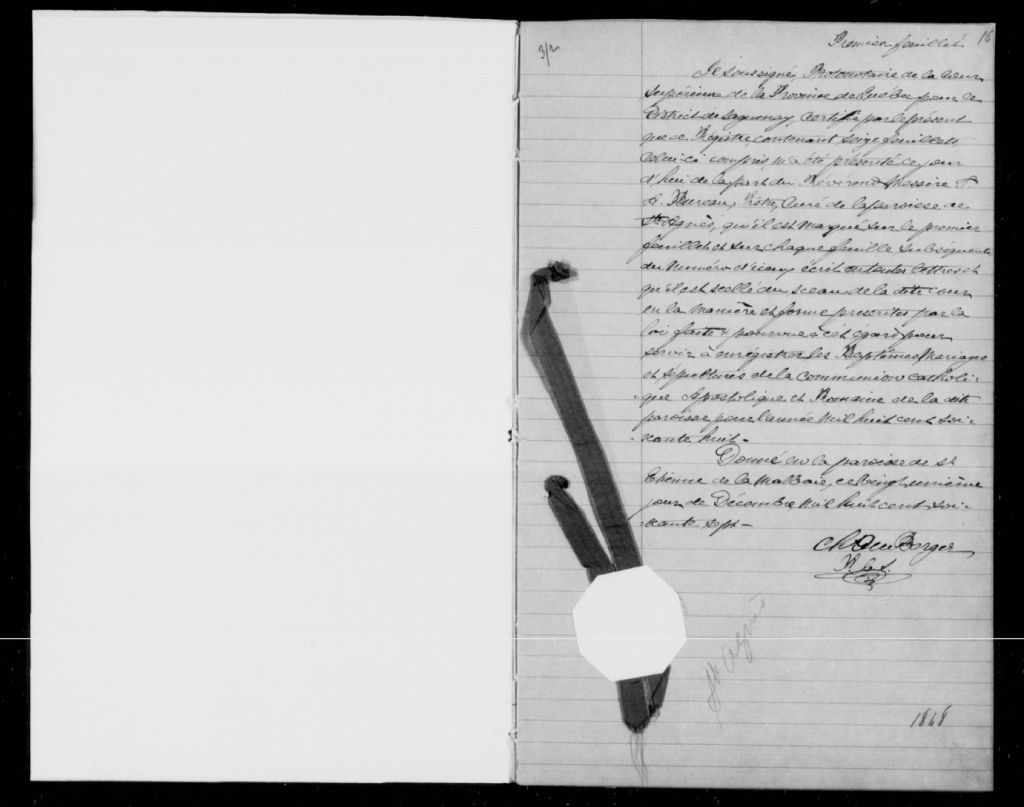 Premier feuillet. 16
3/2
Je soussigné, Protonotaire de la Cour
Supérieure de la Province de Québec pour le
District de Saguenay, certifie par le présent
que ce Régistre contenant seize feuillets
celui-ci compris m'a été présenté ce jour
d'hui de la part du Révérend Messire
Bureau, Ptre, Curé de la paroisse de
Ste Agnès, qu'il est marqué sur le premier
feuillet et sur chaque feuille subséquente
du numéro d'iceux écrit en toutes lettres et
qu'il est scellé du sceau de la dite cour
en la manière et forme prescrites par la
loi faite & pourvue à cet égard pour
servir à enrégistrer les Baptêmes Mariages
et sépultures de la communion catholi-
que Apostolique et Romaine de la dite
paroisse pour l'année Mil huit cent soi-
xante huit -
Donné en la paroisse de St
Etienne de la Malbaie, ce vingt unième
jour de Décembre Mil huit cent soi-
xante sept -
Chs Du Berger
P. C. S.
Ste Agnès
1868